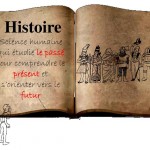 Histoire
Science humaine
qui étudie le passé
pour comprendre le
présent et
s'orienter vers le
futur